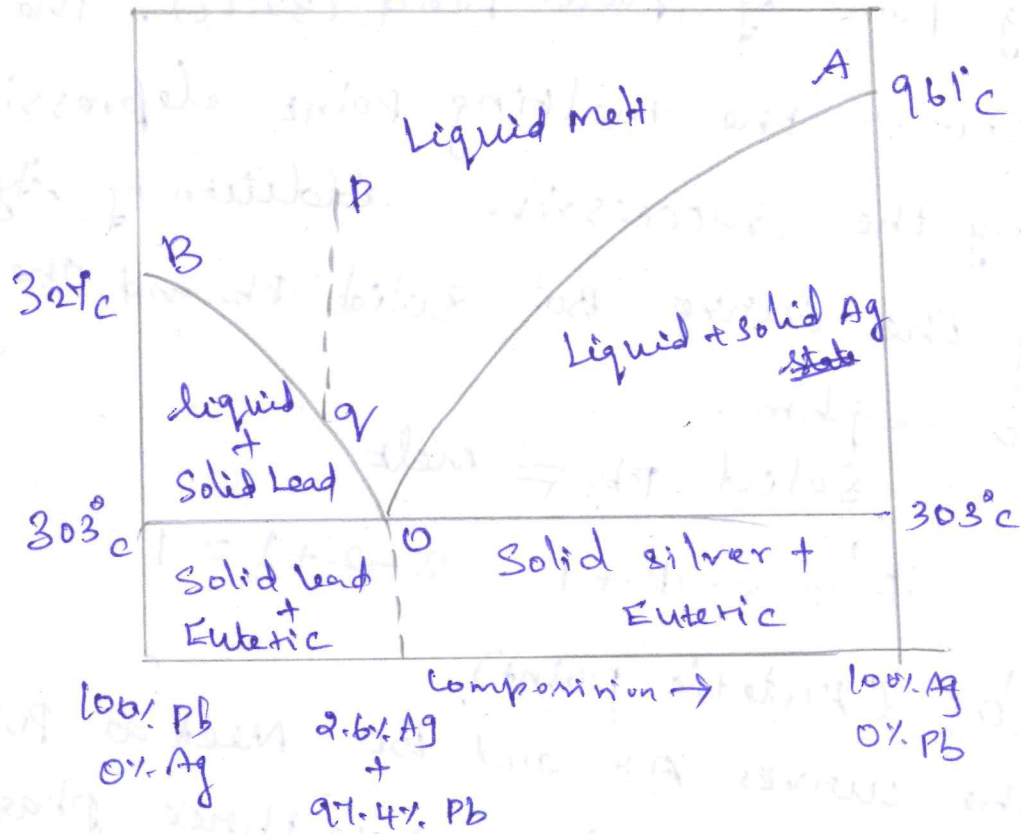 A
961°C
Liquid melt
P
B
327°C
Liquid + Solid Ag
liquid
+
Solid Lead
q
303°C
O
303°C
Solid lead
+
Eutetic
Solid silver +
Eutetic
Composition →
100% Pb
0% Ag
2.6% Ag
+
97.4% Pb
100% Ag
0% Pb